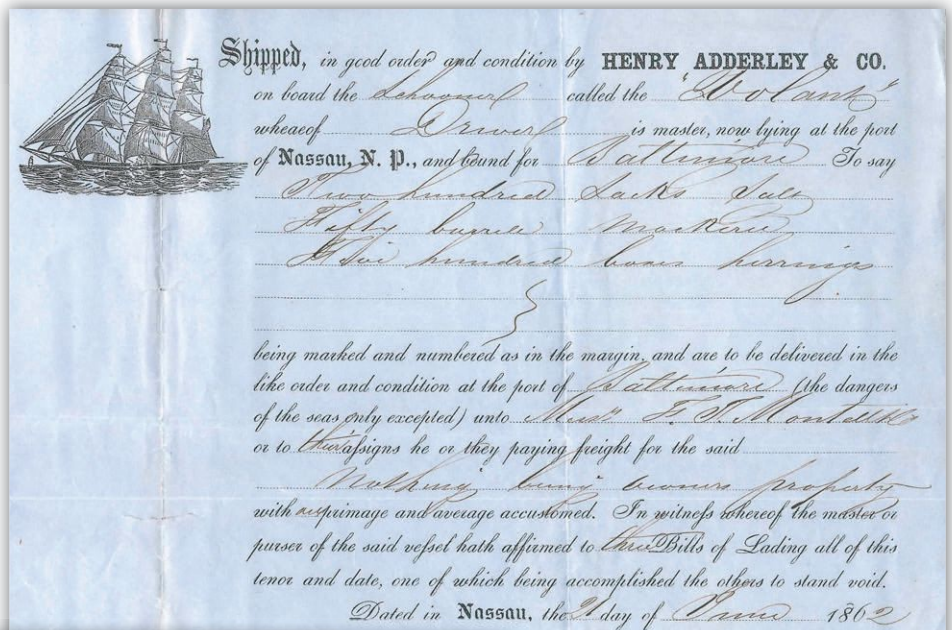 Shipped, in good order and condition by HENRY ADDERLEY & CO.
on board the Schooner called the "Volant"
whereof Driver is master, now lying at the port
of Nassau, N. P., and bound for Baltimore To say
Two hundred Sacks Salt
Fifty barrels Mackerel
Five hundred boxes herrings
being marked and numbered as in the margin, and are to be delivered in the
like order and condition at the port of Baltimore (the dangers
of the seas only excepted) unto Messrs F. T. Montell & Co
or to their assigns he or they paying freight for the said
Nothing being owners property
with primage and average accustomed. In witness whereof the master or
purser of the said vessel hath affirmed to three Bills of Lading all of this
tenor and date, one of which being accomplished the others to stand void.
Dated in Nassau, the day of June 1862